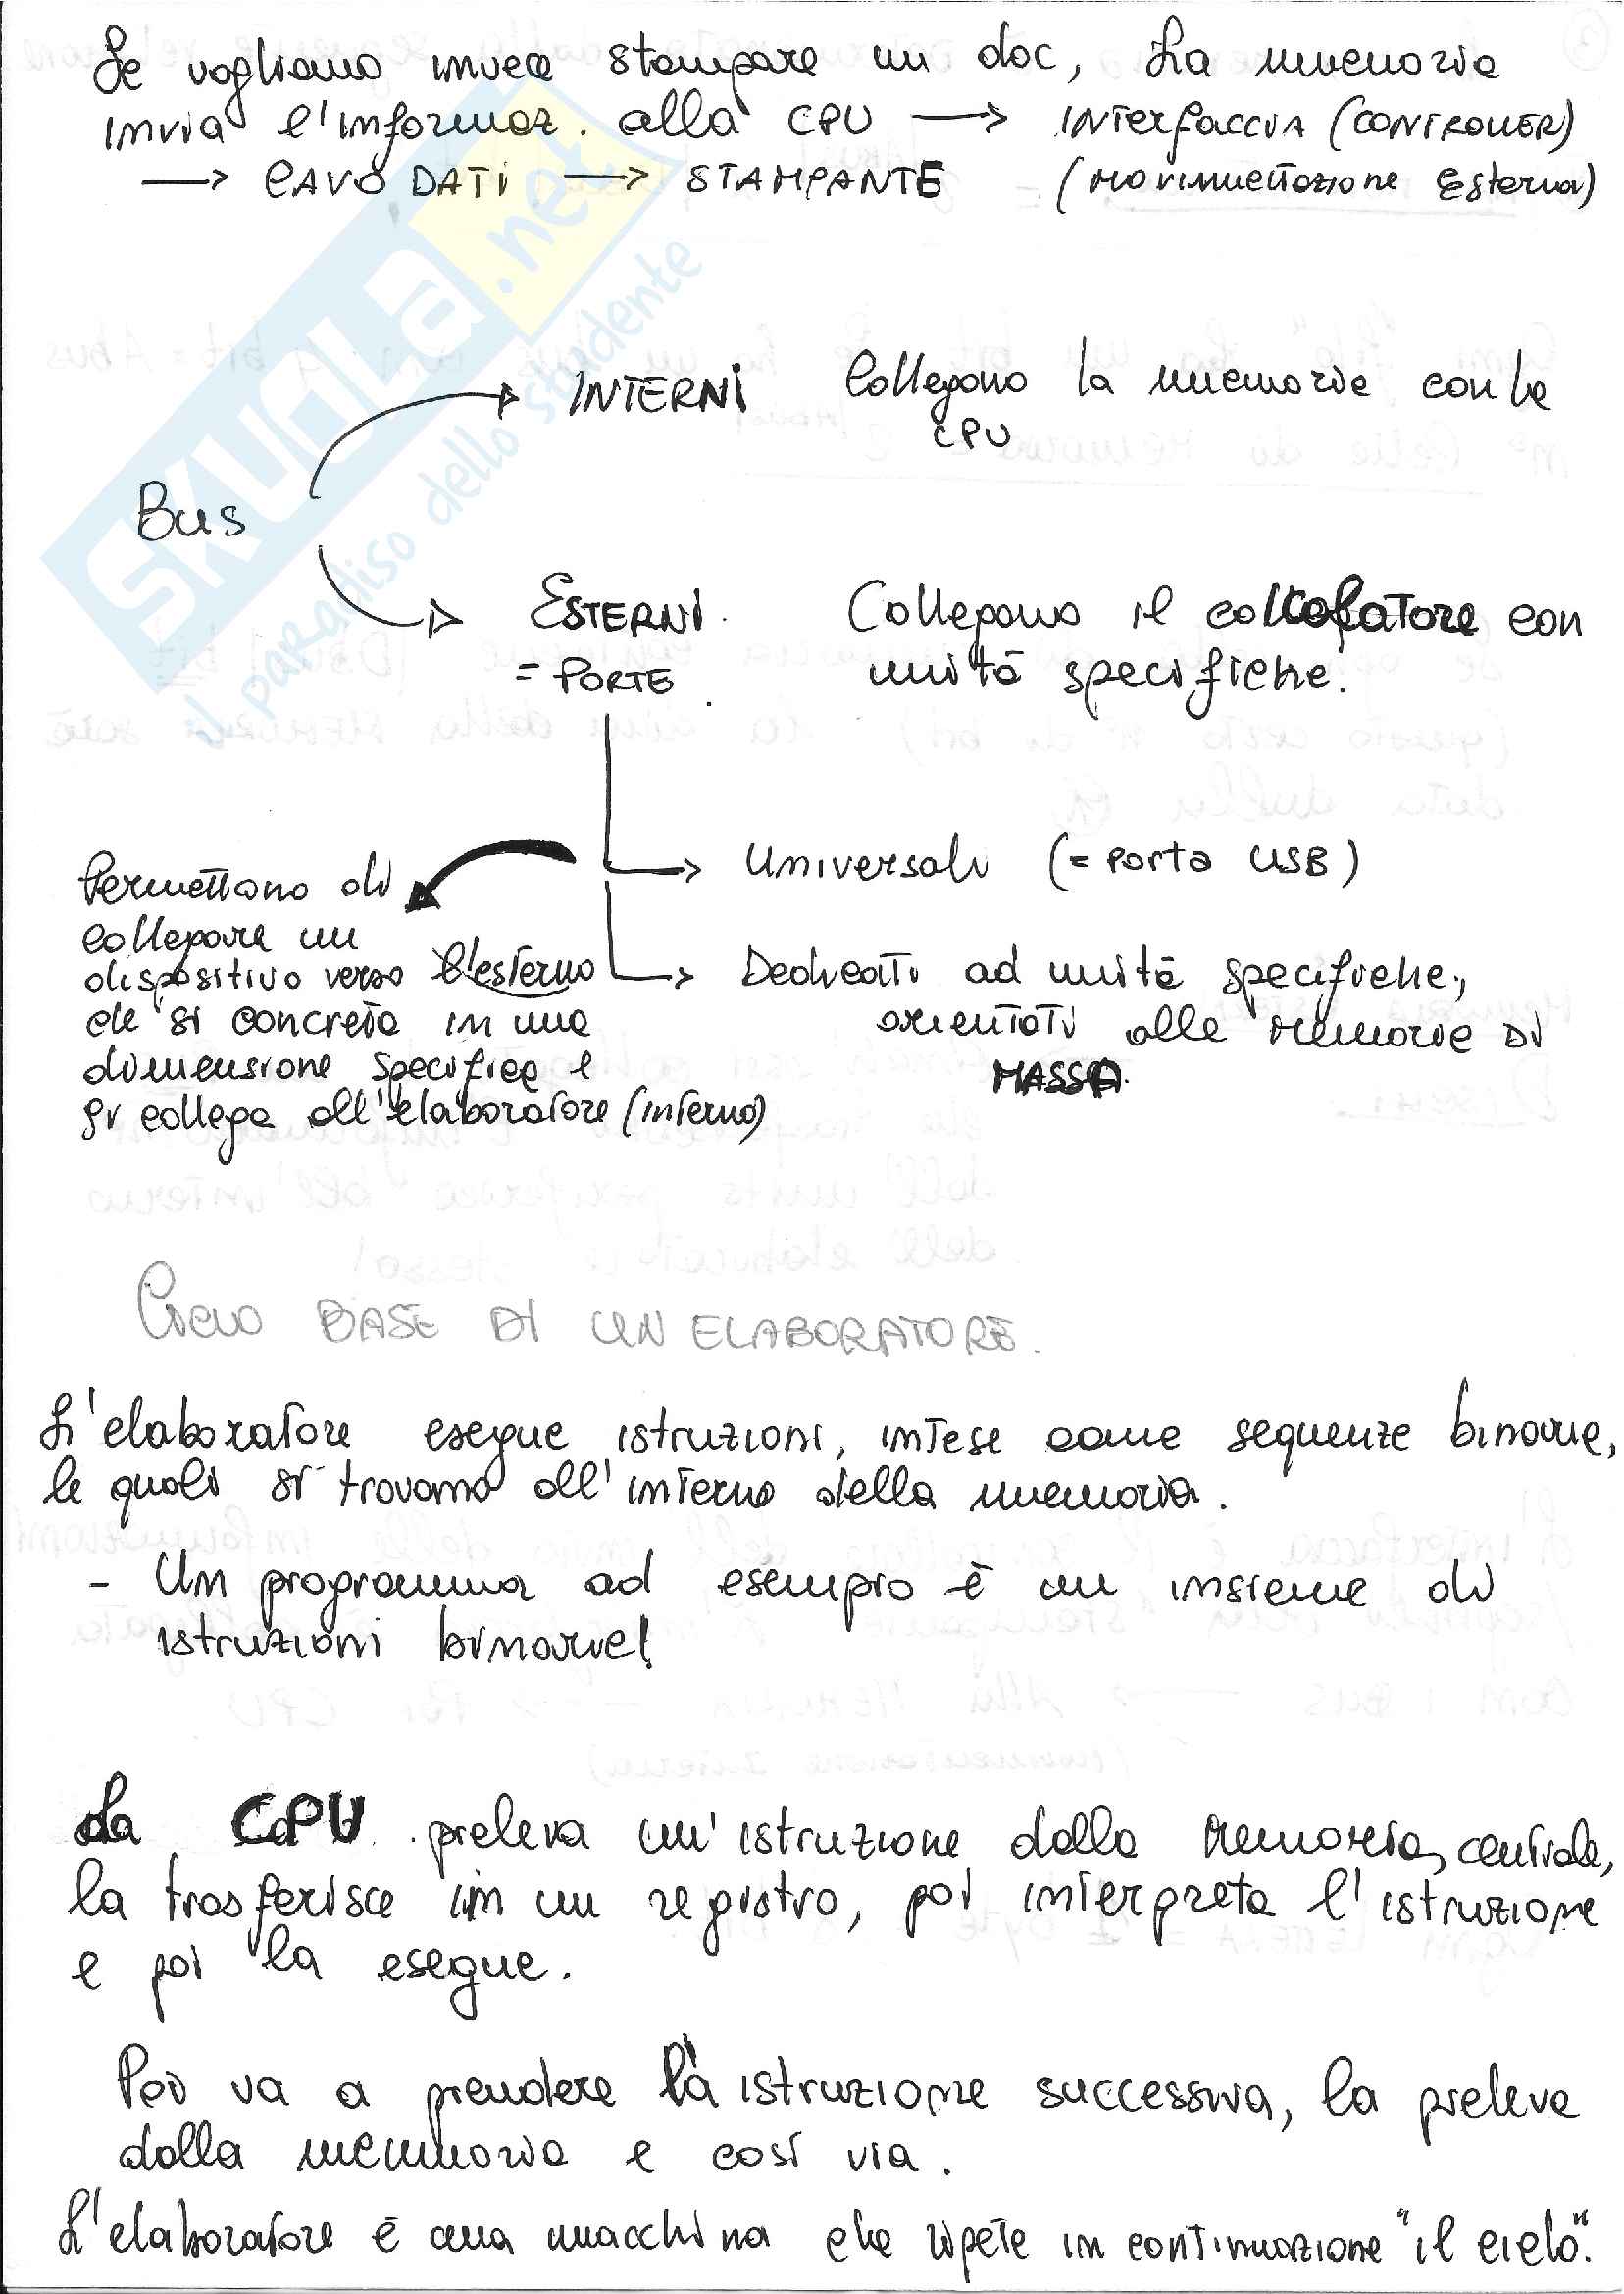 Se vogliamo invece stampare un doc, La memoria
invia l'informaz. alla CPU → INTERfaccia (CONTROLLER)
→ CAVO DATI → STAMPANTE (Movimentazione Esterna)
INTERNI Collegano la memoria con la
CPU
Bus
ESTERNI. Collegano il calcolatore con
= PORTE. unità specifiche.
Universali (= porta USB)
Permettono di
collegare un
dispositivo verso l'esterno
Dedicati ad unità specifiche,
che si concreta in una
orientati alle Memorie Di
dimensione specifica e
MASSA.
si collega all'elaboratore (interno)
Ciclo BASE DI UN ELABORATORE.
L'elaboratore esegue istruzioni, intese come sequenze binarie,
le quali si trovano all'interno della memoria.
- Un programma ad esempio è un insieme di
istruzioni binarie!
La CPU preleva un'istruzione dalla Memoria centrale,
la trasferisce in un registro, poi interpreta l'istruzione
e poi la esegue.
Poi va a prendere la istruzione successiva, la preleva
dalla memoria e così via.
L'elaboratore è una macchina che ripete in continuazione "il ciclo".
SKUOLA.net
il paradiso dello studente